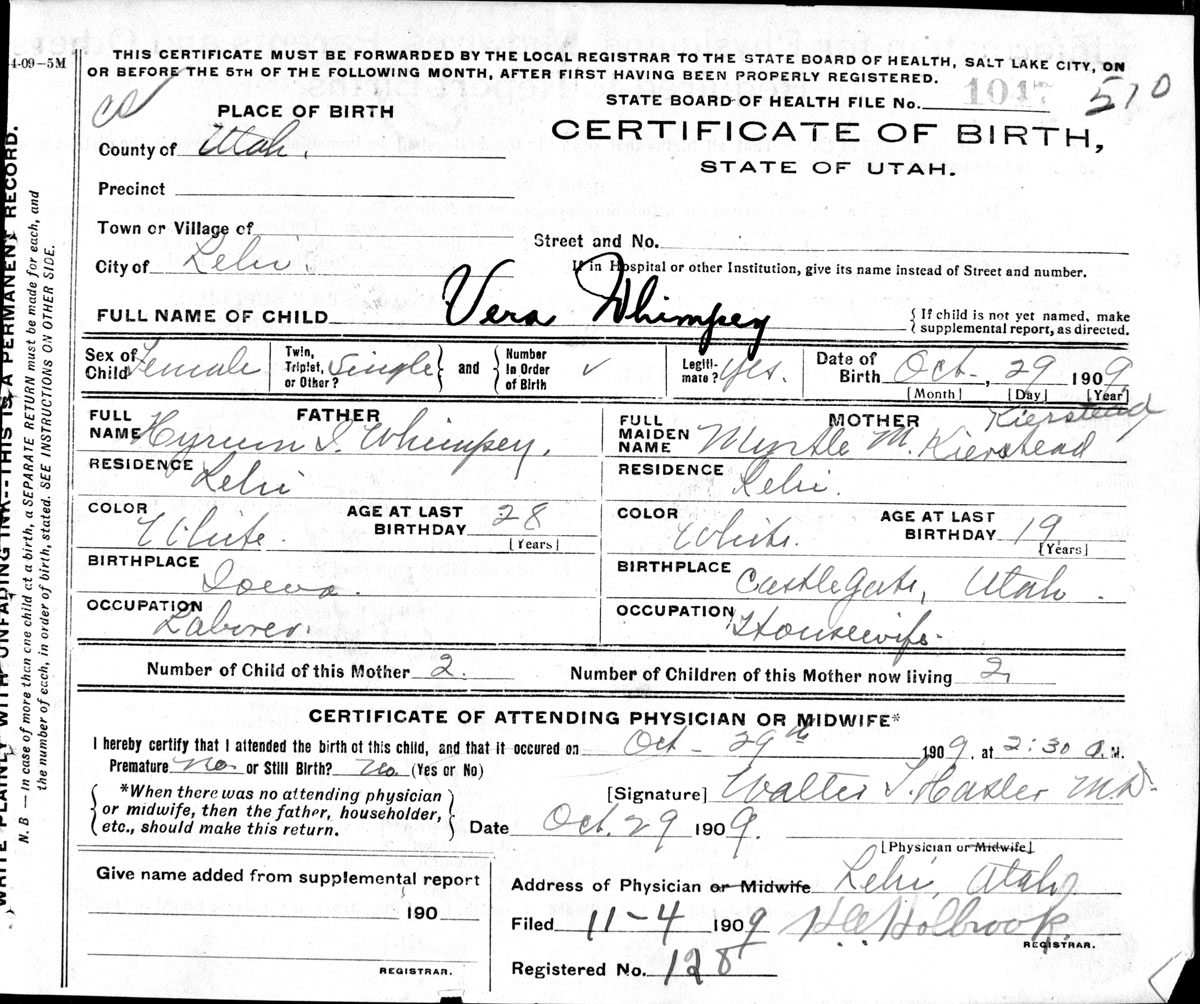 4-09-5M
THIS CERTIFICATE MUST BE FORWARDED BY THE LOCAL REGISTRAR TO THE STATE BOARD OF HEALTH, SALT LAKE CITY, ON
OR BEFORE THE 5TH OF THE FOLLOWING MONTH, AFTER FIRST HAVING BEEN PROPERLY REGISTERED.
STATE BOARD OF HEALTH FILE No. 1047 510
PLACE OF BIRTH
CERTIFICATE OF BIRTH,
STATE OF UTAH.
County of Utah.
Precinct
Town or Village of
Street and No.
City of Lehi.
If in Hospital or other Institution, give its name instead of Street and number.
FULL NAME OF CHILD Vera Whimpey
{ If child is not yet named, make
supplemental report, as directed.
Sex of Child Female
Twin, Triplet, or Other? Single } and { Number In Order of Birth ✓
Legiti-mate? Yes.
Date of Birth Oct-, 29 1909
[Month] [Day] [Year]
FATHER
FULL NAME Hyrum I. Whimpey.
RESIDENCE Lehi
COLOR White. AGE AT LAST BIRTHDAY 28
[Years]
BIRTHPLACE Iowa.
OCCUPATION Laborer.
MOTHER Kierstead
FULL MAIDEN NAME Myrtle M. Kierstead
RESIDENCE Lehi.
COLOR White. AGE AT LAST BIRTHDAY 19
[Years]
BIRTHPLACE Castlegate, Utah.
OCCUPATION Housewife.
Number of Child of this Mother 2. Number of Children of this Mother now living 2
CERTIFICATE OF ATTENDING PHYSICIAN OR MIDWIFE*
I hereby certify that I attended the birth of this child, and that it occured on Oct- 29th 1909. at 2:30 a.M.
Premature No. or Still Birth? No. (Yes or No)
{ *When there was no attending physician
or midwife, then the father, householder,
etc., should make this return. }
[Signature] Walter T. Hasler M.D.
Date Oct. 29 1909.
[Physician or Midwife]
Give name added from supplemental report
190
REGISTRAR.
Address of Physician or Midwife Lehi, Utah
Filed 11-4 1909 H.C. Holbrook.
REGISTRAR.
Registered No. 128
WRITE PLAINLY WITH UNFADING INK--THIS IS A PERMANENT RECORD.
N. B — In case of more than one child at a birth, a SEPARATE RETURN must be made for each, and
the number of each, in order of birth, stated. SEE INSTRUCTIONS ON OTHER SIDE.